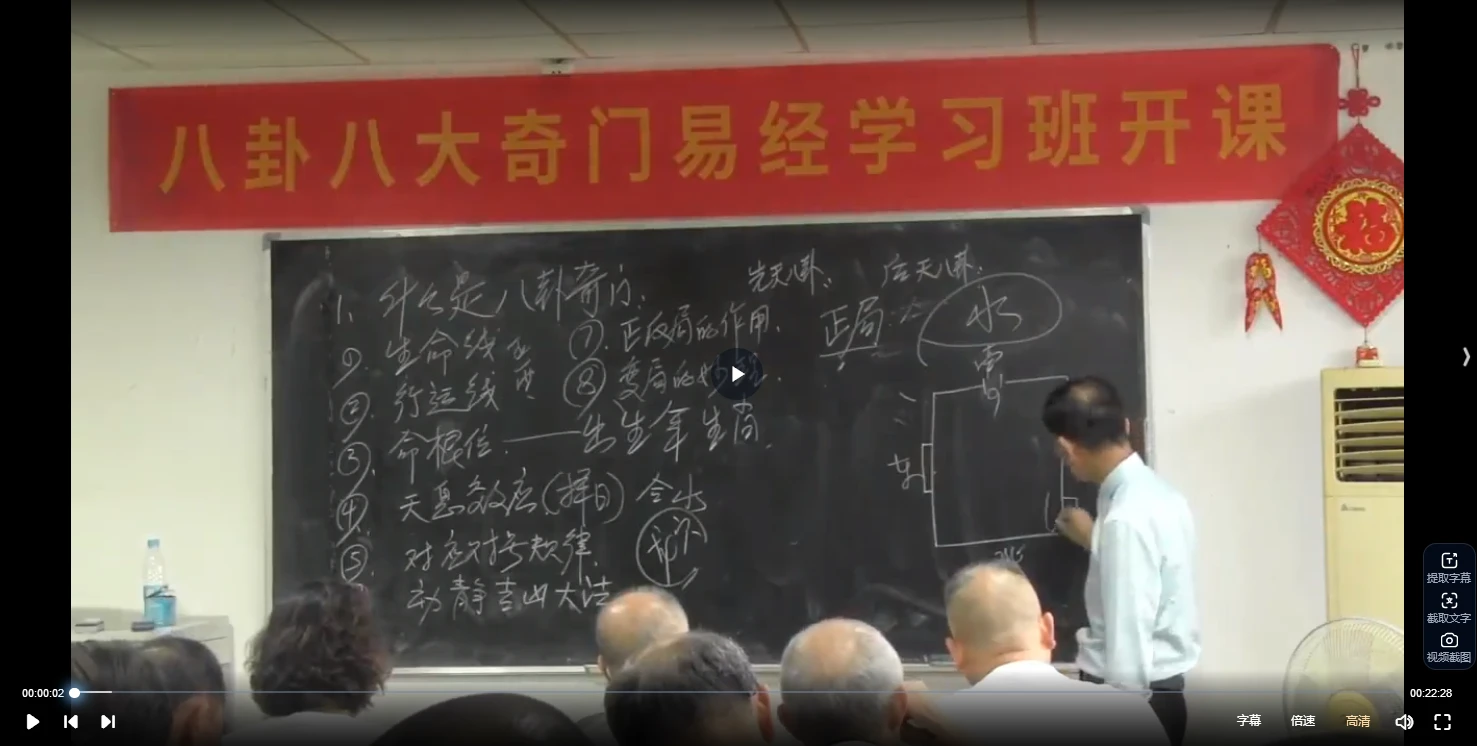 八卦八大奇门易经学习班开课
福
先天八卦. 后天八卦.
1. 什么是八卦奇门.
生命线
⑦. 正反局的作用.
正局
水
② 行运线
⑧ 变局的妙
③. 命根位. —— 出生年生肖.
④. 天息效应(择日)
⑤. 对应对号规律.
动静吉凶大法
南
东
提取字幕
截取文字
视频截图
00:00:02
00:22:28
字幕
倍速
高清